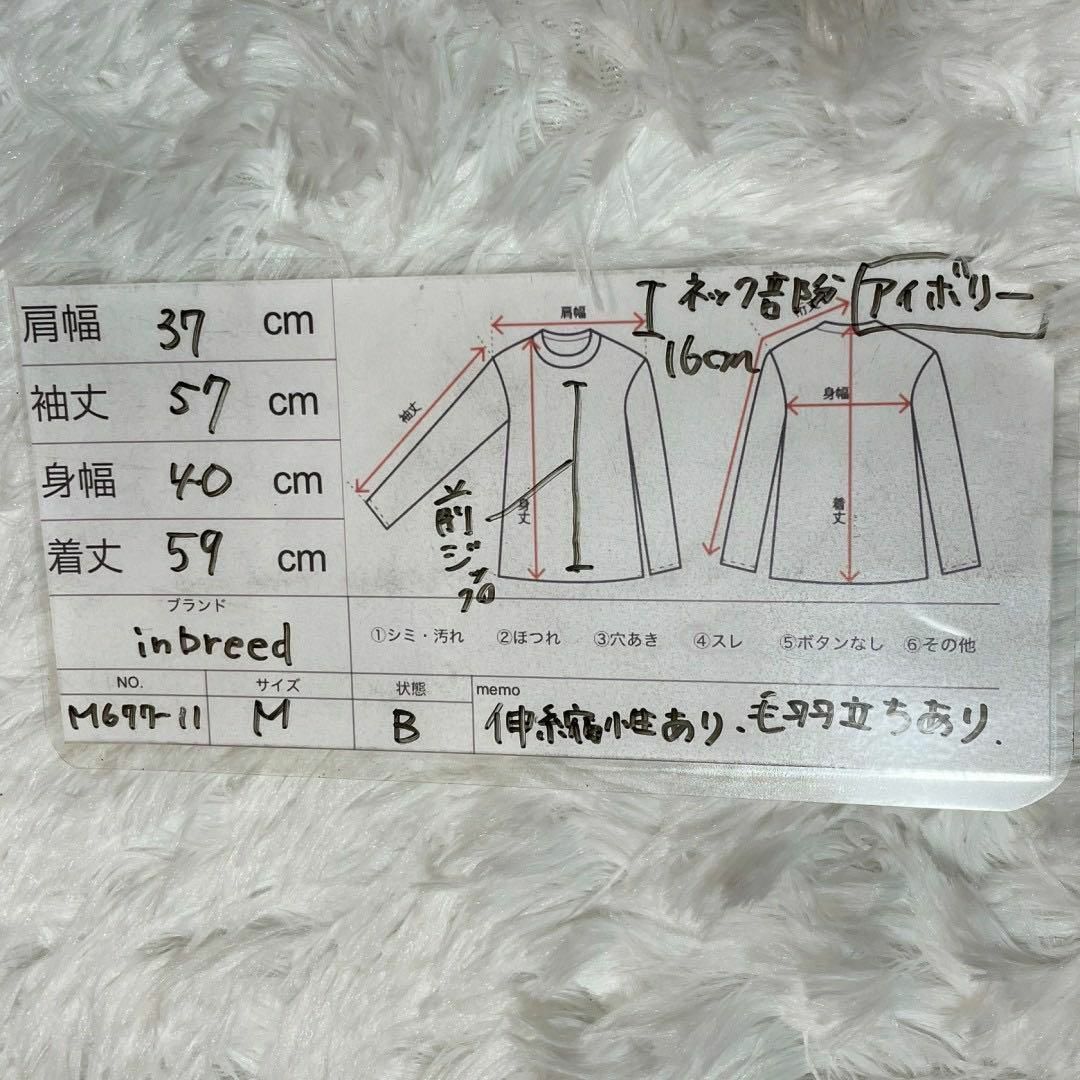 肩幅 37 cm
袖丈 57 cm
身幅 40 cm
着丈 59 cm
ブランド
inbreed
NO.
M677-11
サイズ
M
状態
B
肩幅
袖丈
身丈
前ジップ
ネック部分
16cm
アイボリー
裄丈
身幅
着丈
①シミ・汚れ ②ほつれ ③穴あき ④スレ ⑤ボタンなし ⑥その他
memo
伸縮性あり、毛羽立ちあり.